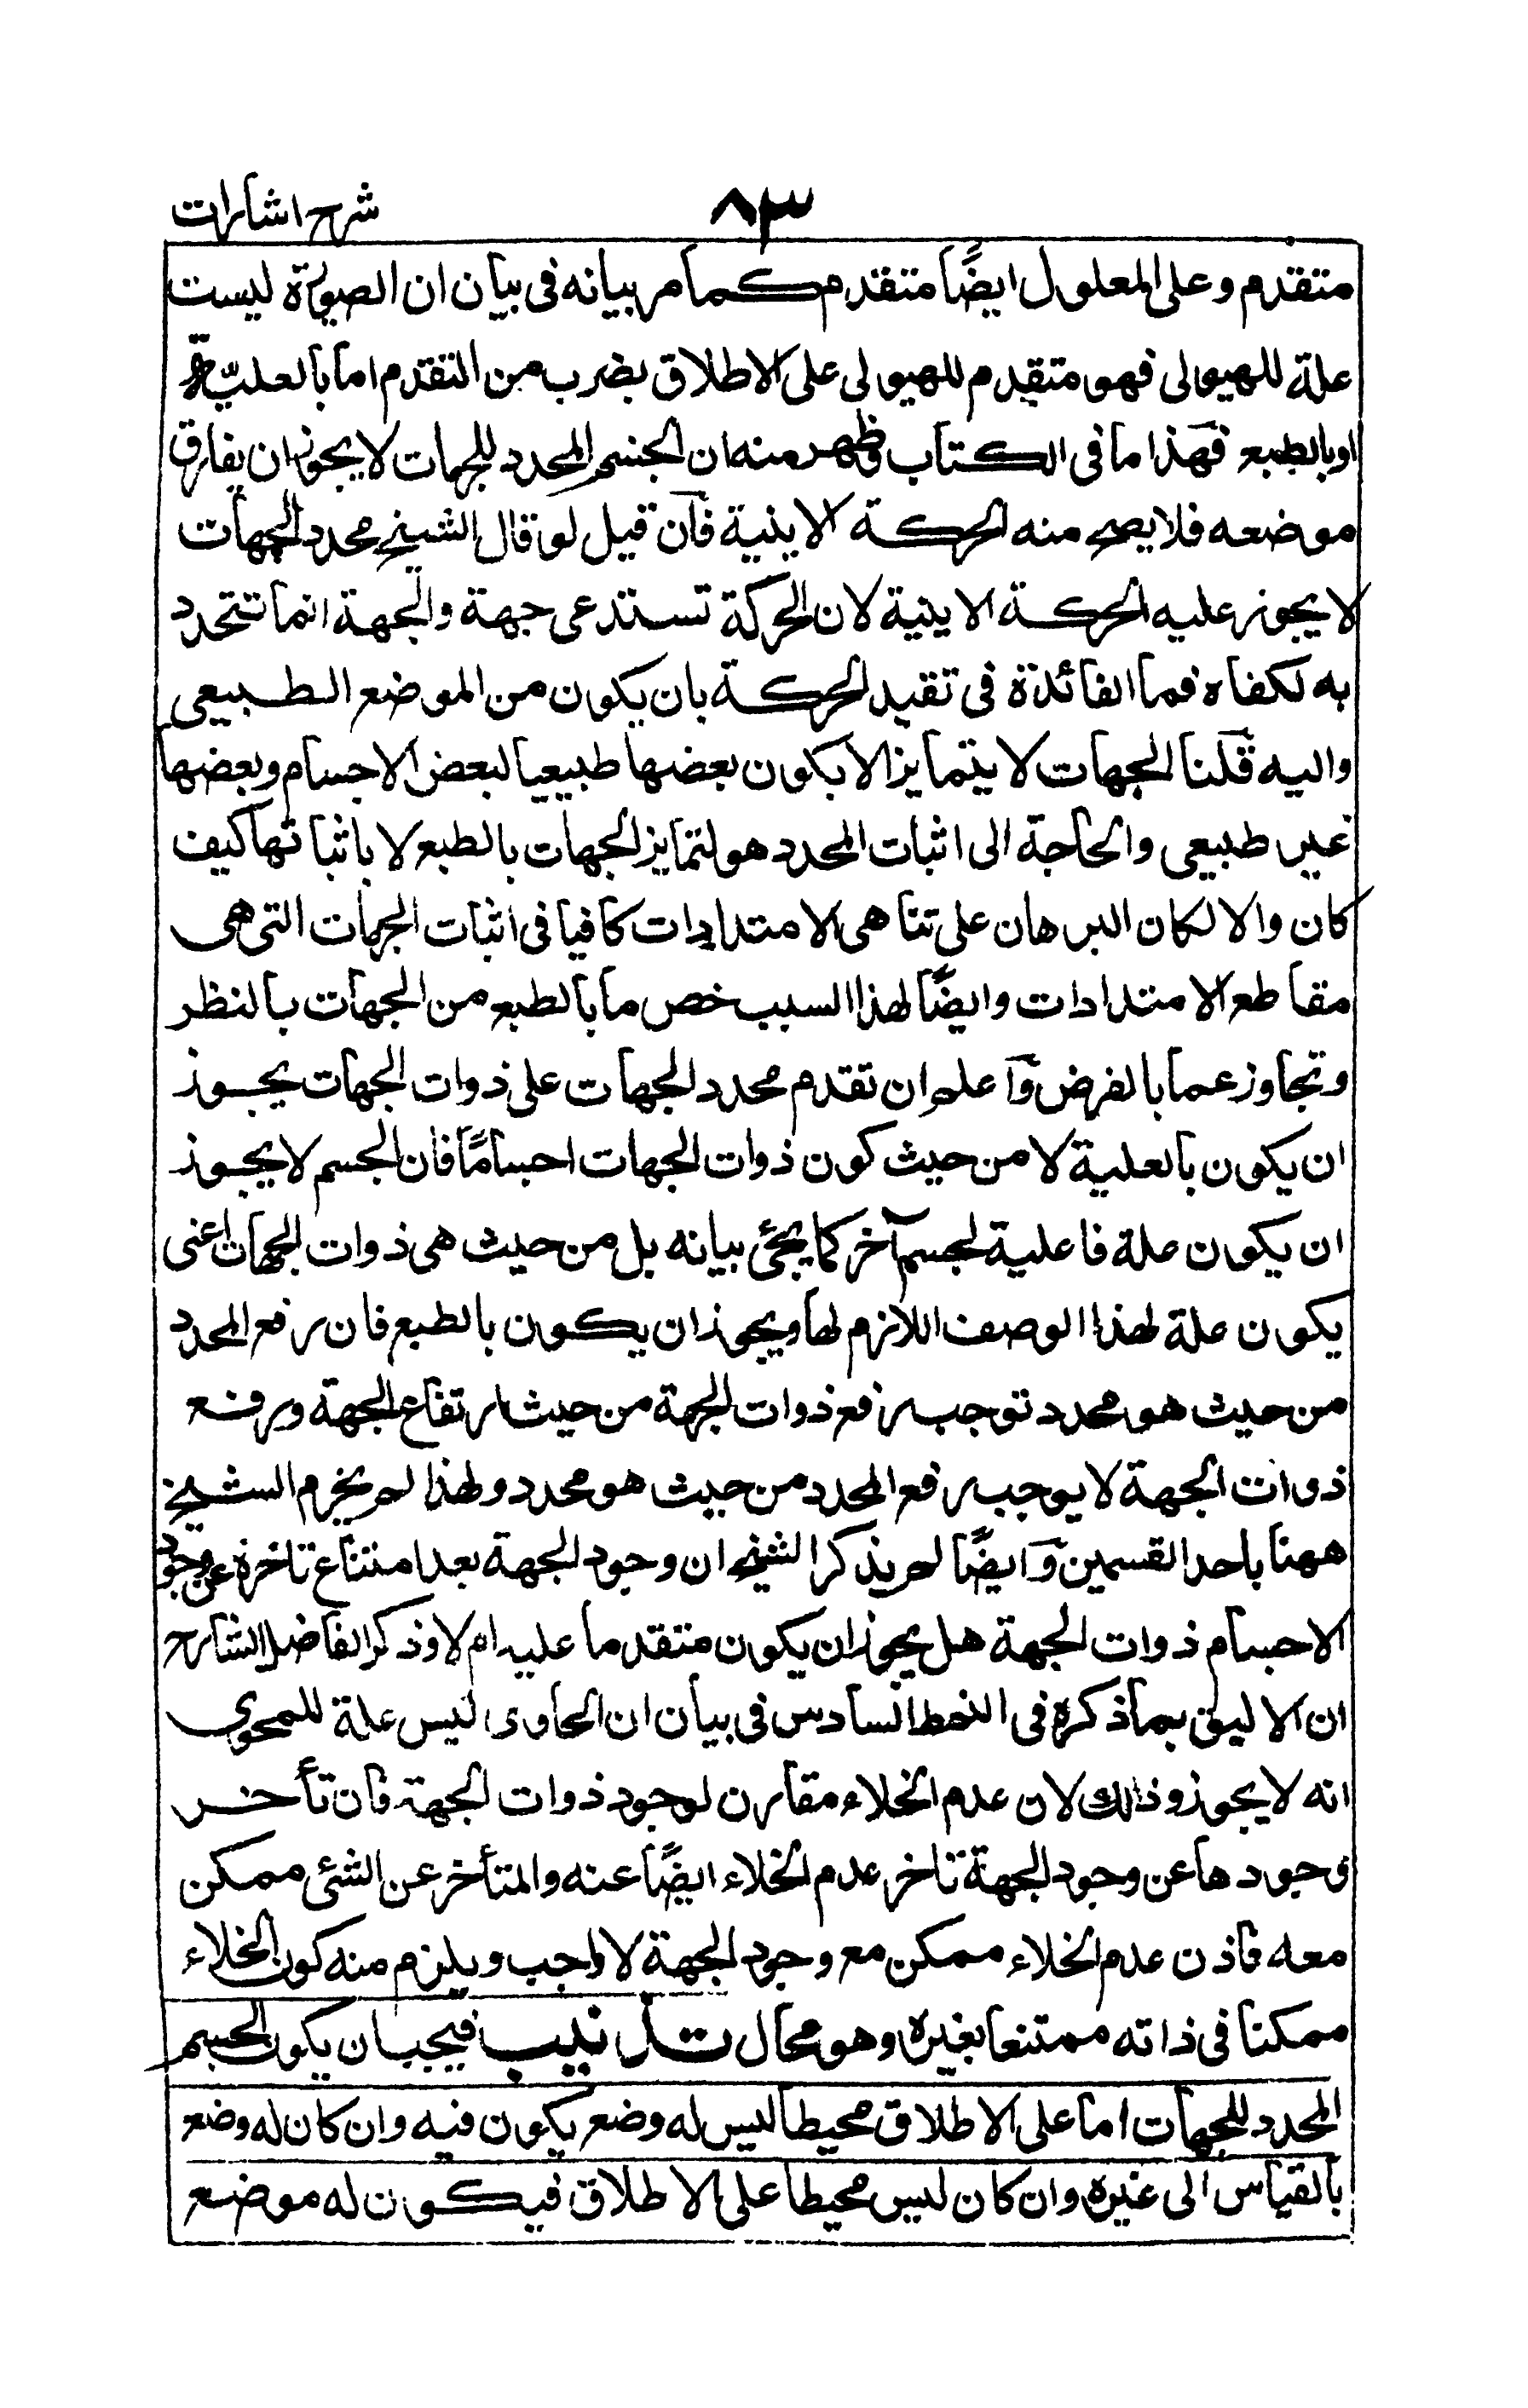 ٨٣ شرح اشارات
متقدم وعلى المعلول ايضًا متقدم كما مر بيانه فى بيان ان الصورة ليست
علة للهيولى فهو متقدم للهيولى على الاطلاق بضرب من التقدم اما بالعليّة
او بالطبع فهذا ما فى الكتاب وظهر منه ان الجسم المحدد للجهات لا يجوز ان يفارق
موضعه فلا يصح منه الحركة الاينية فآن قيل لو قال الشيخ محدد الجهات
لا يجوز عليه الحركة الاينية لان الحركة تستدعى جهة والجهة انما تتحدد
به لكفاه فما الفائدة فى تقيد الحركة بان يكون من الموضع الطبيعى
واليه قلنا الجهات لا يتمايز الا بكون بعضها طبيعيا لبعض الاجسام وبعضها
غير طبيعى والحاجة الى اثبات المحدد هو لتمايز الجهات بالطبع لا باثباتها كيف
كان والا لكان البرهان على تناهى الامتدادات كافيا فى اثبات الجهات التى هى
مقاطع الامتدادات وايضًا لهذا السبب خص ما بالطبع من الجهات بالنظر
وتجاوز عما بالفرض وآعلم ان تقدم محدد الجهات على ذوات الجهات يجوز
ان يكون بالعلية لا من حيث كون ذوات الجهات اجسامًا فان الجسم لا يجوز
ان يكون علة فاعلية لجسم آخر كما يجئ بيانه بل من حيث هى ذوات الجهات اعنى
يكون علة لهذا الوصف اللازم لها ويجوز ان يكون بالطبع فان رفع المحدد
من حيث هو محدد توجب رفع ذوات الجهة من حيث ارتفاع الجهة ورفع
ذوات الجهة لا يوجب رفع المحدد من حيث هو محدد ولهذا لم يخرم الشيخ
ههنا باحد القسمين وآيضًا لم يذكر الشيخ ان وجود الجهة بعد امتناع تاخره عن وجود
الاجسام ذوات الجهة هل يجوز ان يكون متقدما عليه ام لا وذكر الفاضل الشارح
ان الاليق بما ذكره فى النمط السادس فى بيان ان الحاوى ليس علة للمحوى
انه لا يجوز وذلك لان عدم الخلاء مقارن لوجود ذوات الجهة فان تأخر
وجودها عن وجود الجهة تاخر عدم الخلاء ايضًا عنه والمتأخر عن الشئ ممكن
معه فاذن عدم الخلاء ممكن مع وجود الجهة لا واجب ويلزم منه كون الخلاء
ممكنا فى ذاته ممتنعا بغيره وهو محال تذنيب فيجب ان يكون الجسم
المحدد للجهات اما على الاطلاق محيطا ليس له وضع يكون فيه وان كان له وضع
بالقياس الى غيره وان كان ليس محيطا على الاطلاق فيكون له موضع